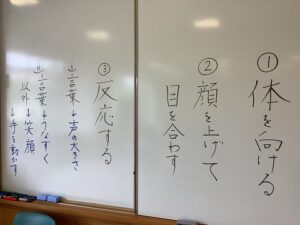 ① 体を向ける
② 顔を上げて
目を合わす
③ 反応する
⇓言葉↓声の大きさ
⇓言葉↓うなずく
以外↓笑顔
↓手を動かす